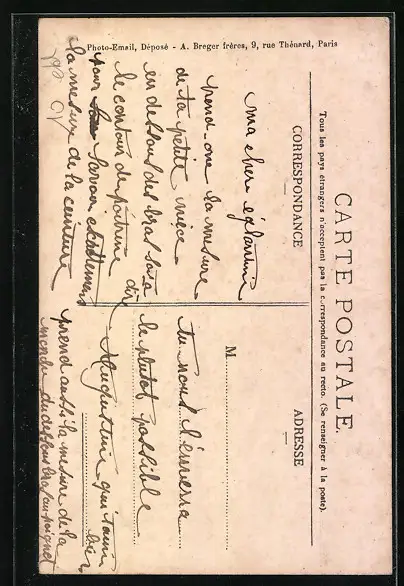 Photo-Email, Déposé - A. Breger frères, 9, rue Thénard, Paris
CARTE POSTALE
Tous les pays étrangers n'acceptent pas la correspondance au recto. (Se renseigner à la poste).
CORRESPONDANCE
ADRESSE
ma cher églantine
prend-one la mesure
de ta petite nièce
en dessous des bras
le contour de poitrine
pour savoir
la mesure de la ceinture
M
tu nous l'enverra
le plutot possible
Augustine qui t'aime
prend aussi la mesure de la
manche du dessous bras au poignet